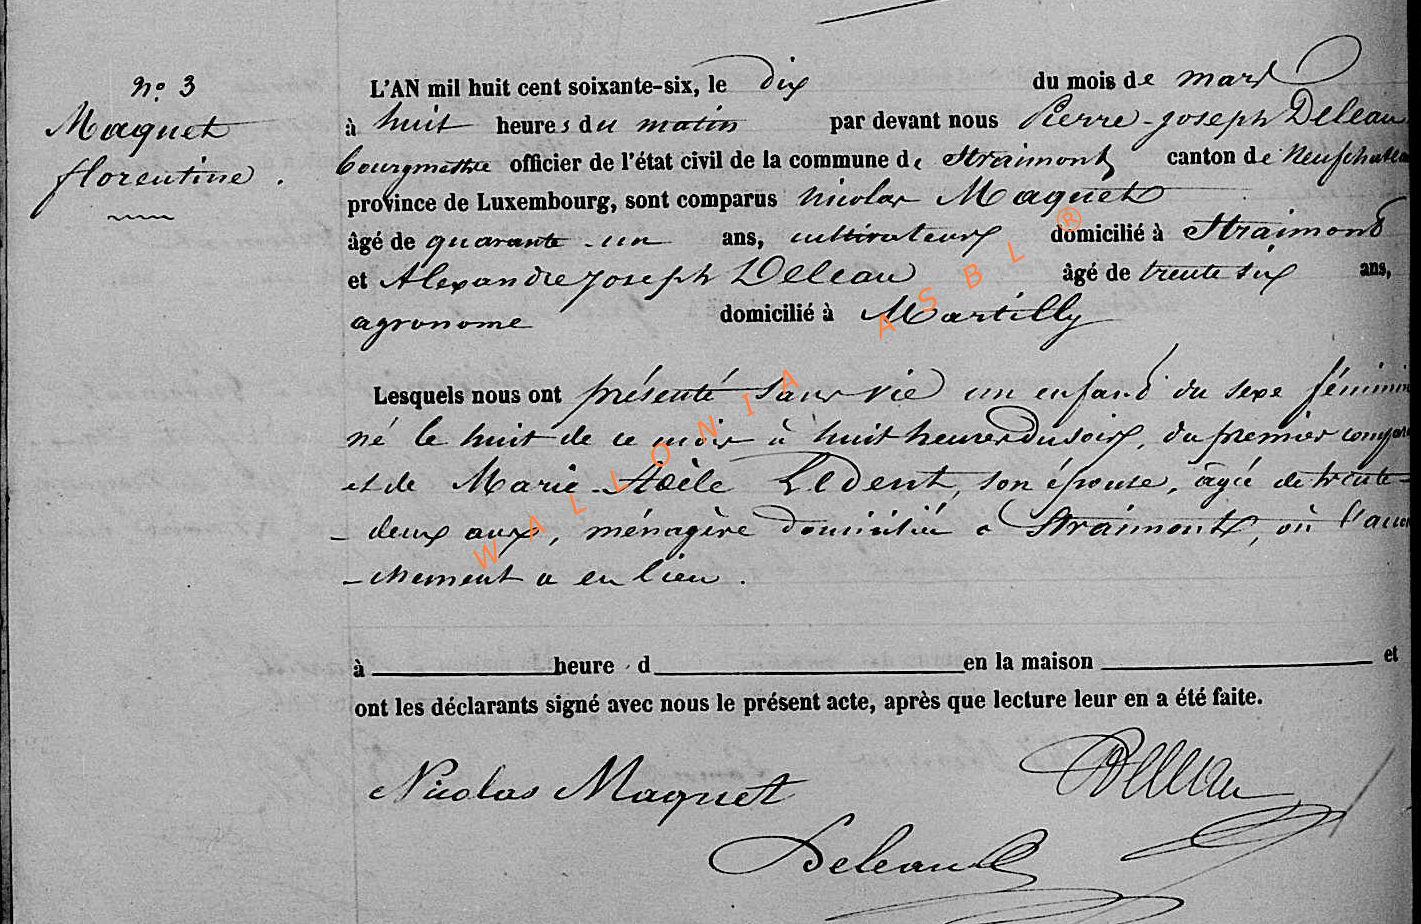 n° 3
Maquet
florentine.
L'AN mil huit cent soixante-six, le dix du mois de mars
à huit heures du matin par devant nous Pierre-joseph Deleau
bourgmestre officier de l'état civil de la commune de Straimont canton de Neufchateau
province de Luxembourg, sont comparus Nicolas Maquet
âgé de quarante-un ans, cultivateur, domicilié à Straimont
et Alexandre joseph Deleau âgé de trente six ans,
agronome domicilié à Martilly
Lesquels nous ont présenté sans vie un enfant du sexe féminin
né le huit de ce mois à huit heures du soir, du premier compar
et de Marie-Adèle Ledent, son épouse, âgée de trente-
-deux ans, ménagère domiciliée à Straimont, où l'accou
-chement a eu lieu.
à heure d en la maison et
ont les déclarants signé avec nous le présent acte, après que lecture leur en a été faite.
Nicolas Maquet Deleau
Deleau
WALLONIA ASBL ®